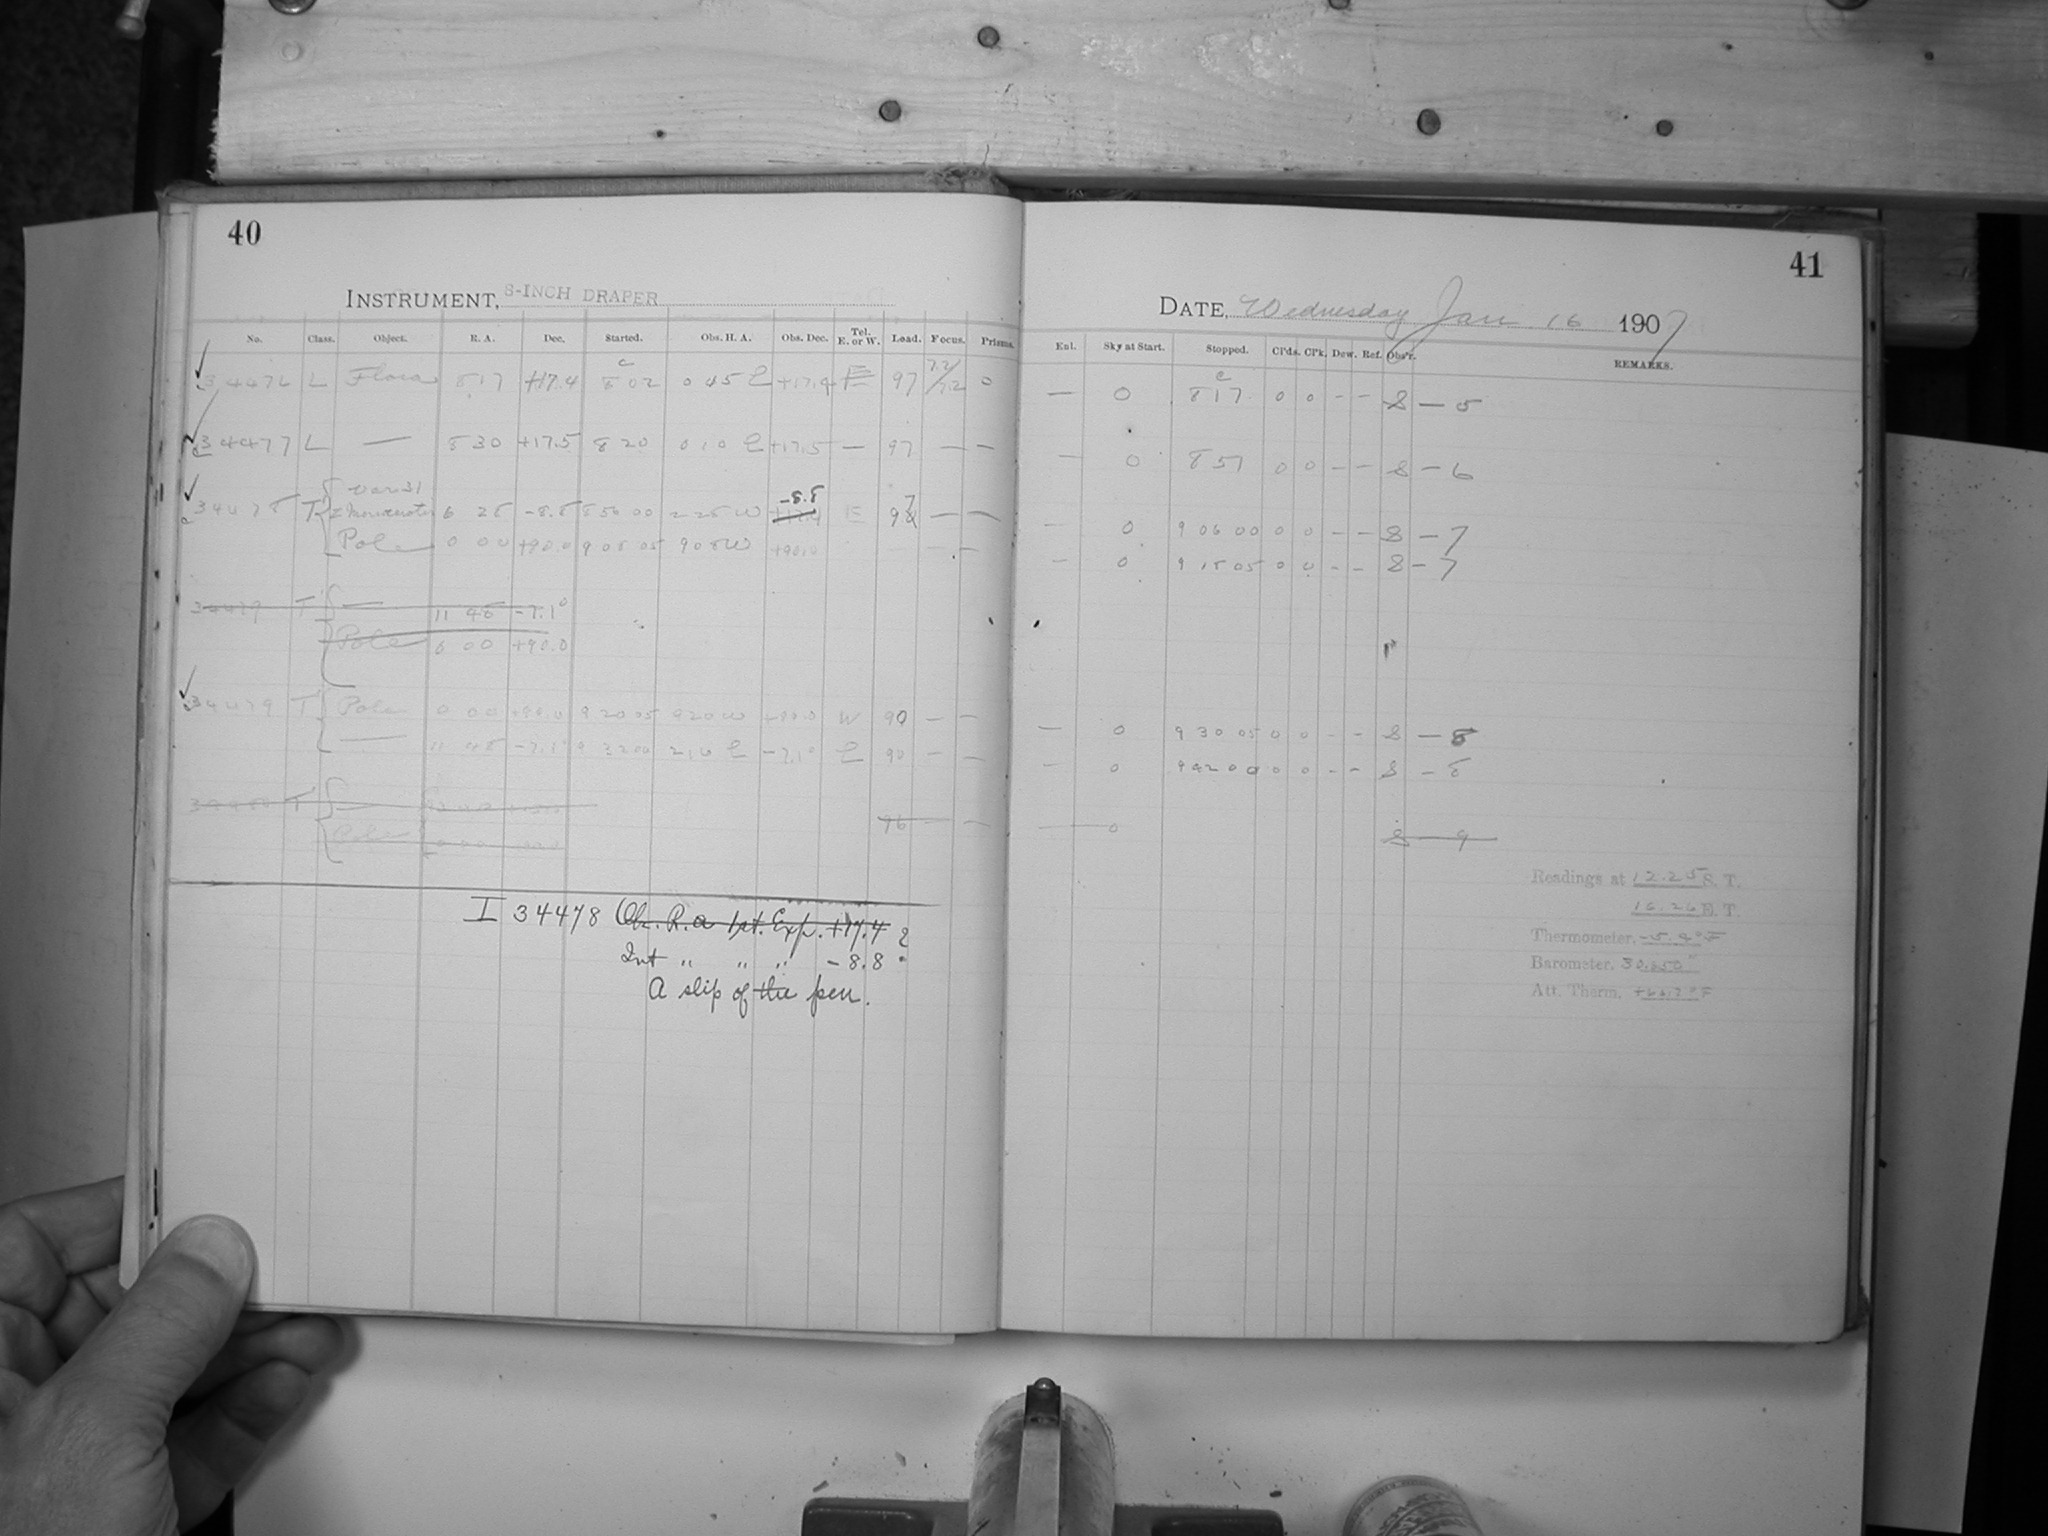 40
INSTRUMENT, 8-INCH DRAPER
No. Class. Object. R. A. Dec. Started. Obs. H. A. Obs. Dec. Tel. E. or W. Load. Focus. Prisms.
L Flora 8 17 +17.4 8 02 0 45 E +17.4 E 97 0
34477 L — 8 30 +17.5 8 20 0 10 E +17.5 — 97 — —
-8.8
34478 T 6 28 -8.8 2 28 W E — —
Pole 0 00 +90.0 9 05 05 9 05 W +90.0
34479 T — 11 48 -7.1°
Pole 6 00 +90.0
34479 T Pole 0 00 +90.0 9 20 05 9 20 W +90.0 W 90 — —
— 11 48 -7.1° 9 32 00 E -7.1° E 90 — —
Pole
96 — —
I 34478 Ob. R. a 1st. Exp. +17.4 ?
Int " " " - 8.8 "
A slip of the pen.
41
DATE, Wednesday Jan 16 1907
Enl. Sky at Start. Stopped. Cl'ds. Cl'k. Dew. Ref. Obs'r. REMARKS.
c
— 0 8 17 0 0 - - S — 5
— 0 8 51 0 0 - - S — 6
— 0 9 06 00 0 0 - - S — 7
— 0 9 15 05 0 0 - - S — 7
— 0 9 30 05 0 0 - - S — 8
— 0 9 42 00 0 0 - - S — 8
— 0 S — 9
Readings at 12.25 S. T.
16.26 E. T.
Thermometer, °F
Barometer,
Att. Therm. °F